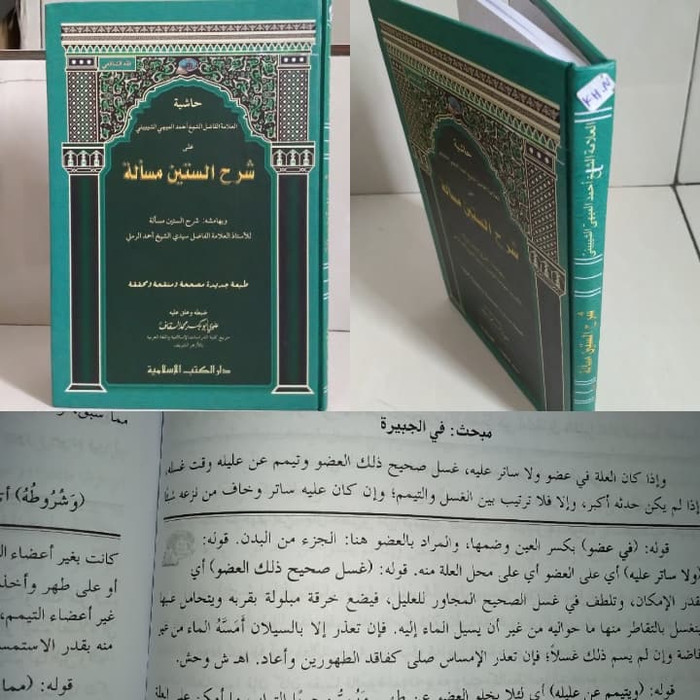 فقه الشافعي
حاشية
العلامة الفاضل الشيخ أحمد الميهي الشيبيني
على
شرح الستين مسألة
وبهامشه: شرح الستين مسألة
للأستاذ العلامة الفاضل سيدي الشيخ أحمد الرملي
طبعة جديدة مصححة ومنقحة ومحققة
ضبطه وعلق عليه
علوي أبوبكر محمد السقاف
دار الكتب الإسلامية
حاشية
شرح الستين مسألة
العلامة الشيخ أحمد الميهي الشيبيني
شرح الستين مسألة
مما سبق
(وَشُرُوطُهُ)
كانت بغير أعضاء
أو على طهر وأخذ
غير أعضاء التيمم،
منه بقدر الاستمس
قوله:
مبحث: في الجبيرة
وإذا كان العلة في عضو ولا ساتر عليه، غسل صحيح ذلك العضو وتيمم عن عليله وقت غسله،
إذا لم يكن حدثه أكبر، وإلا فلا ترتيب بين الغسل والتيمم؛ وإن كان عليه ساتر وخاف من نزعه
قوله: (في عضو) بكسر العين وضمها، والمراد بالعضو هنا: الجزء من البدن. قوله:
(ولا ساتر عليه) أي على العضو أي على محل العلة منه. قوله: (غسل صحيح ذلك العضو) أي
بقدر الإمكان، وتلطف في غسل الصحيح المجاور للعليل، فيضع خرقة مبلولة بقربه ويتحامل عليها
لينغسل بالتقاطر منها ما حواليه من غير أن يسيل الماء إليه. فإن تعذر إلا بالسيلان أَمَسَّهُ الماء من غير
إفاضة وإن لم يسم ذلك غسلاً؛ فإن تعذر الإمساس صلى كفاقد الطهورين وأعاد. اهـ ش وحش.
قوله: (ويتيمم عن عليله) أي لئلا يخلو العضو عن طهر